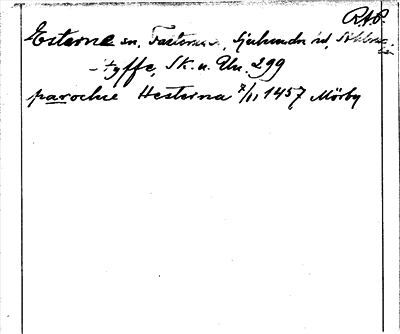 RAP.
Esterne sn, Fasterna, Sjuhundr hd,
Styffe, Sk. u. Un. 299
parochie Hesterna 7/11 1457 Mörby